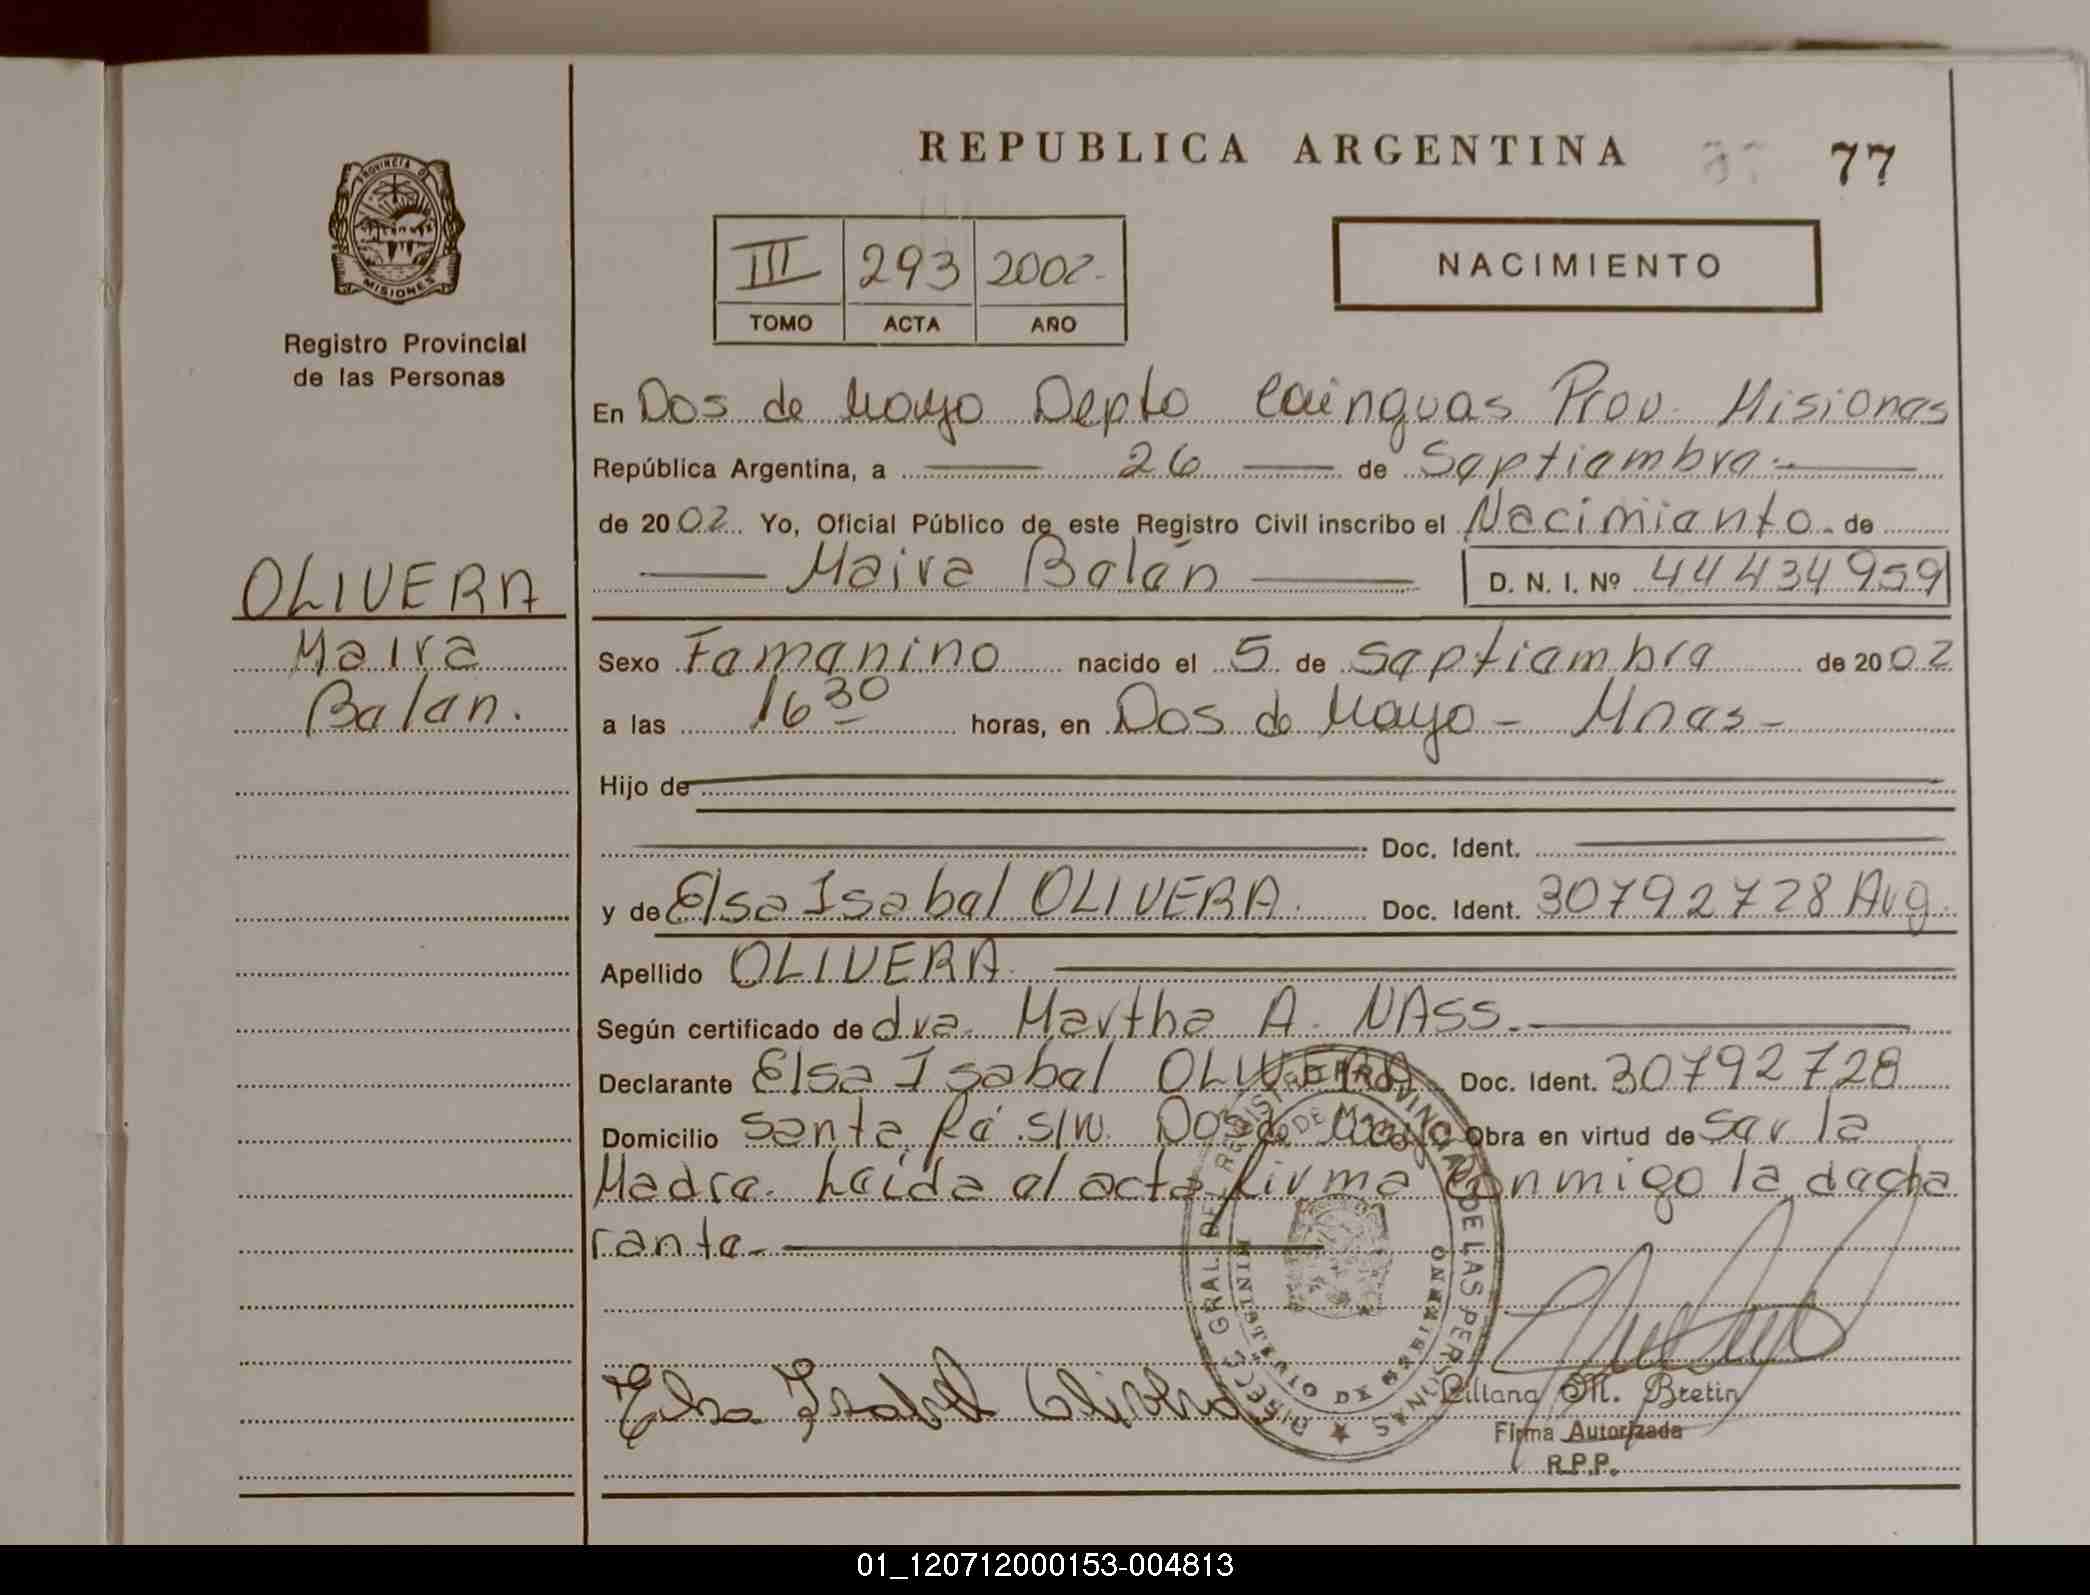 REPUBLICA ARGENTINA 77
PROVINCIA DE MISIONES
Registro Provincial
de las Personas
NACIMIENTO
III 293 2002-
TOMO ACTA AÑO
En Dos de Mayo Depto Cainguas Prov. Misiones
República Argentina, a 26 de Septiembre.-
de 2002. Yo, Oficial Público de este Registro Civil inscribo el Nacimiento de
Maira Belén D. N. I. Nº 44434959
OLIVERA
Maira
Belen.
Sexo Femenino nacido el 5 de Septiembre de 2002
a las 16 30 horas, en Dos de Mayo - Mnes -
Hijo de
Doc. Ident.
y de Elsa Isabel OLIVERA. Doc. Ident. 30792728 Arg.
Apellido OLIVERA.
Según certificado de dra. Martha A. NAss.
Declarante Elsa Isabel OLIVERA Doc. Ident. 30792728
Domicilio Santa Fé s/n. Dos de Mayo Obra en virtud de Ser la
Madre. Leída el acta firma conmigo la decla
rante.
Elsa Isabel Olivera
DIRECC. GRAL. DEL REGISTRO PROVINCIAL DE LAS PERSONAS
Liliana M. Bretin
Firma Autorizada
R.P.P.
01_120712000153-004813